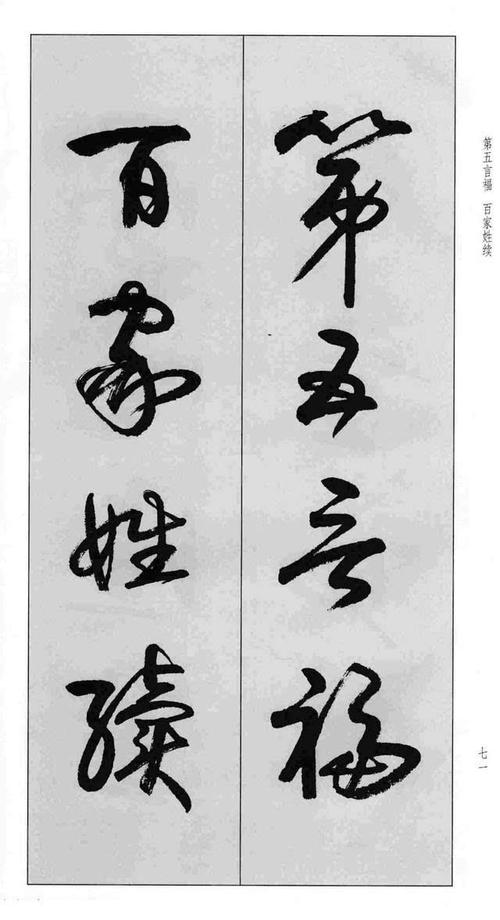 第五言福 百家姓续
第五言福
百家姓续
七一